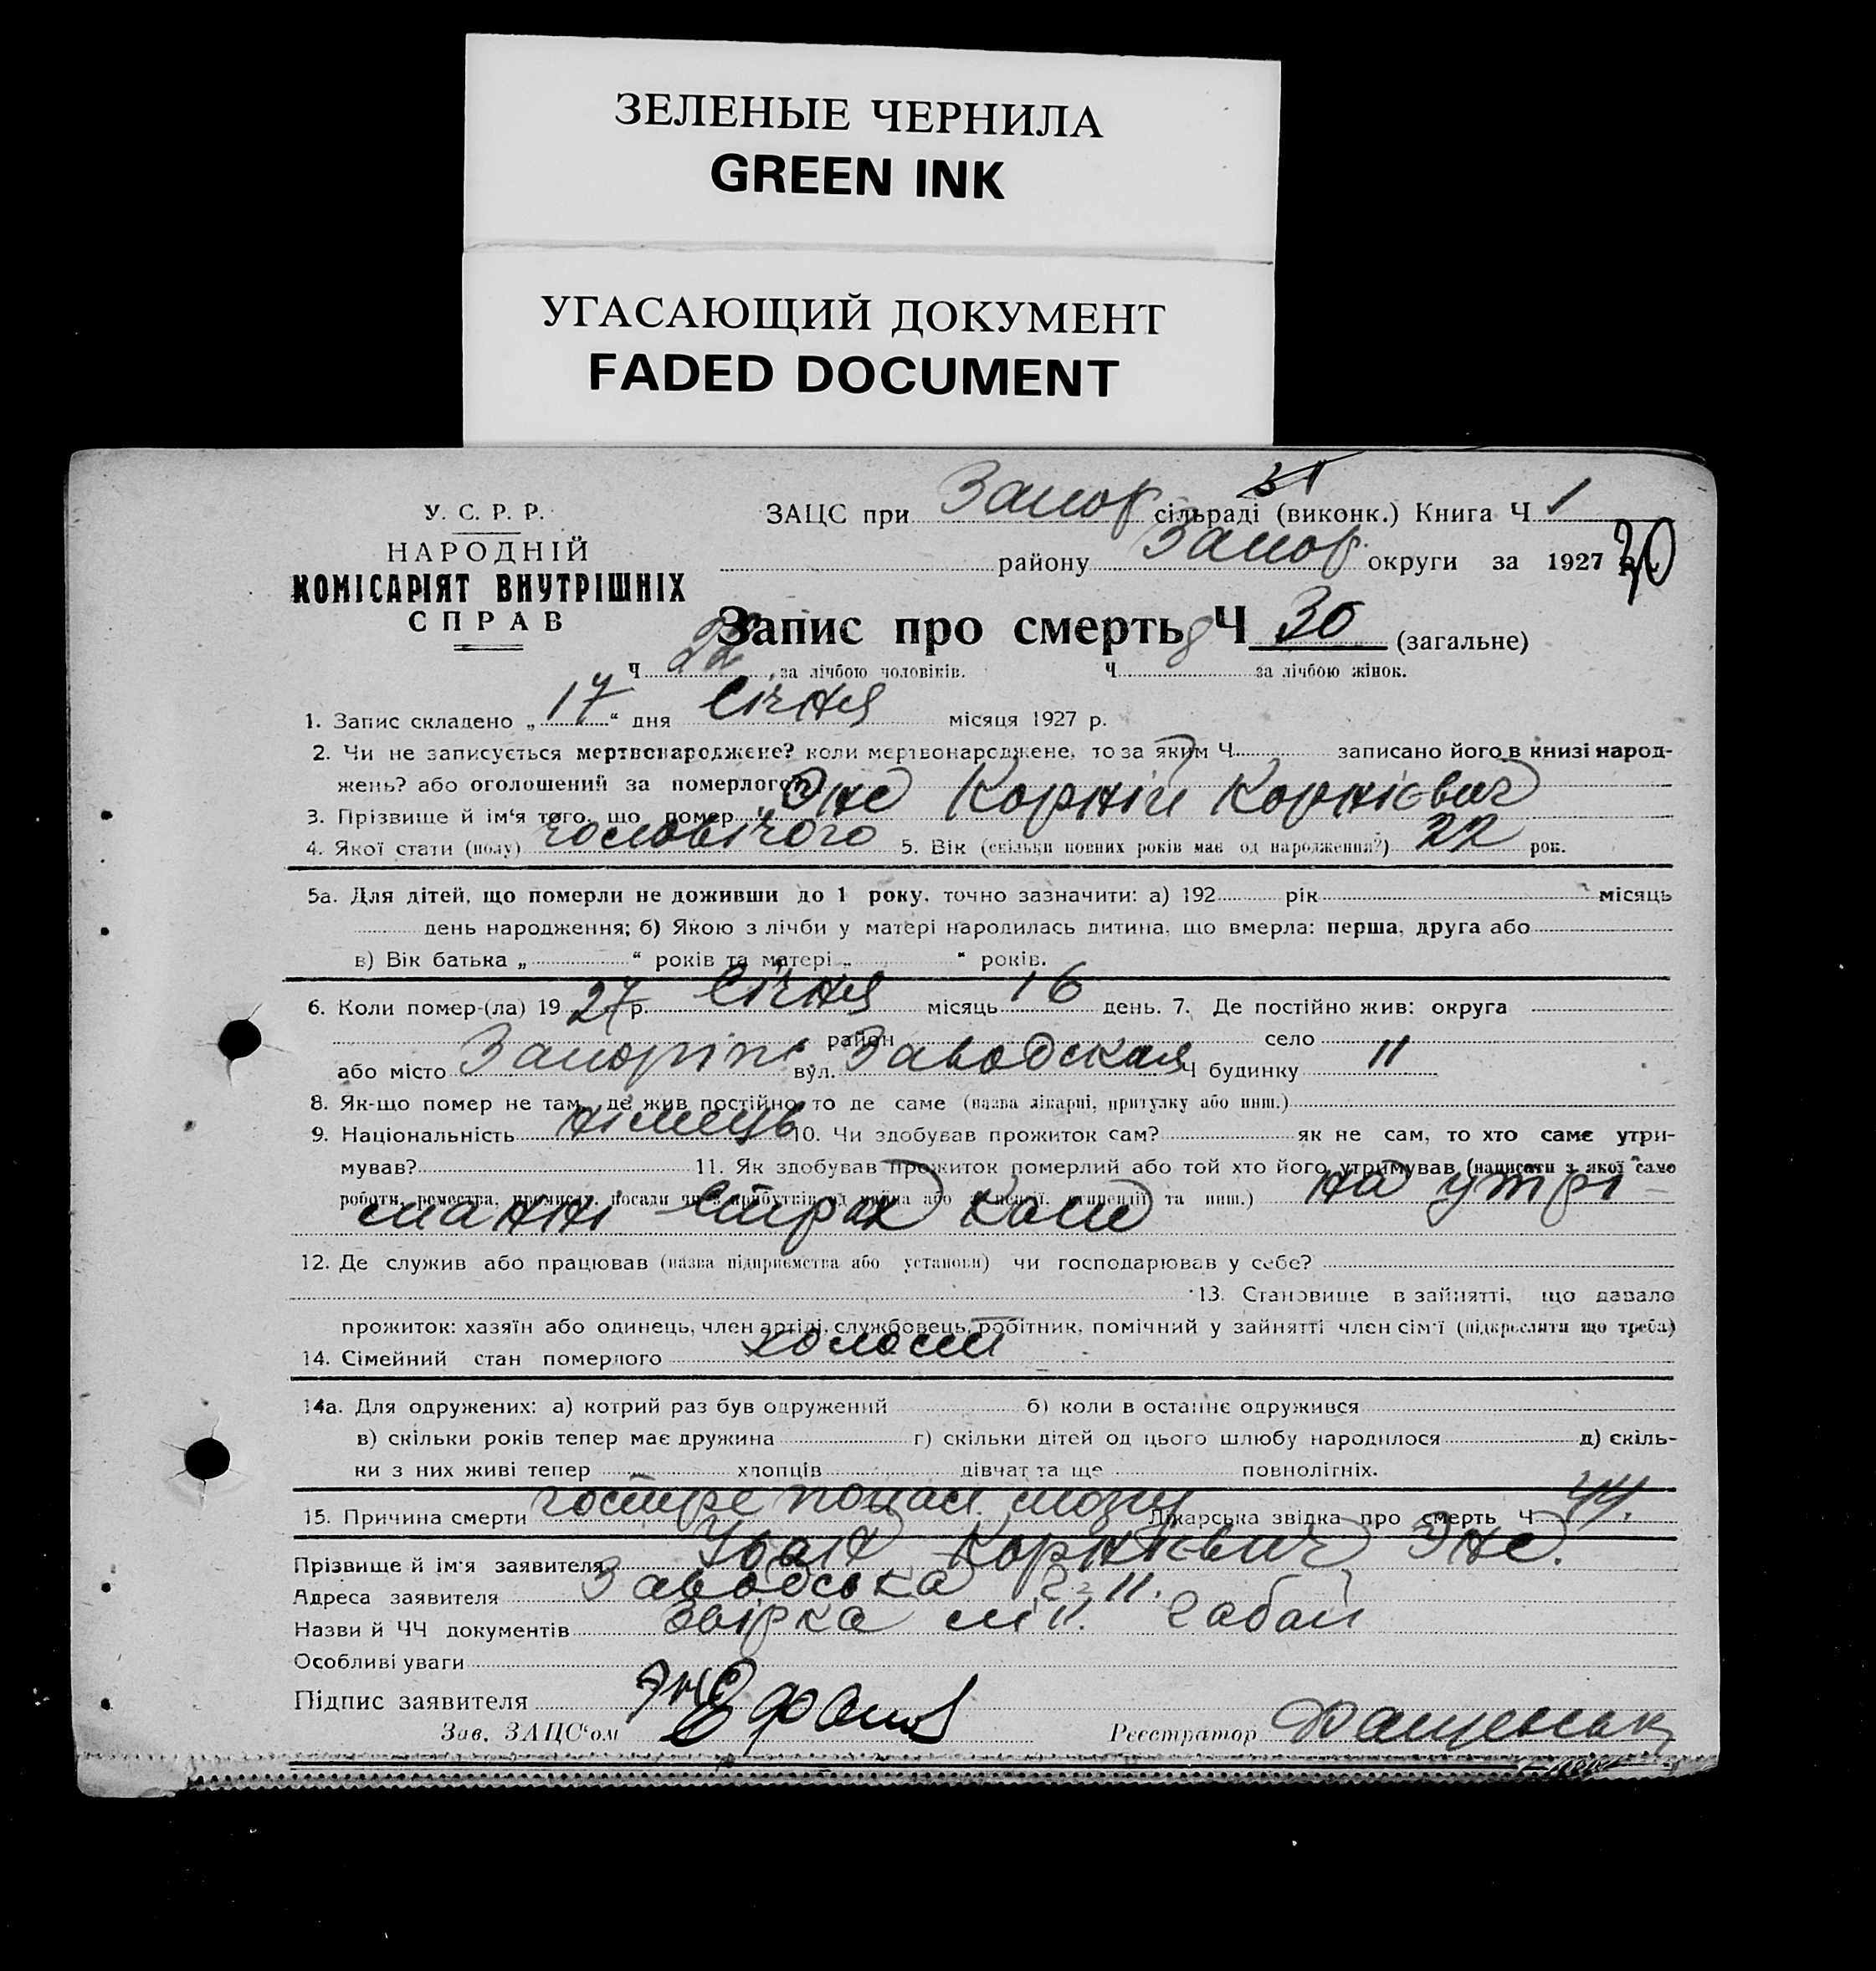 ЗЕЛЕНЫЕ ЧЕРНИЛА
GREEN INK
УГАСАЮЩИЙ ДОКУМЕНТ
FADED DOCUMENT
У. С. Р. Р.
НАРОДНІЙ
КОМІСАРІЯТ ВНУТРІШНІХ
СПРАВ
ЗАЦС при Запор сільраді (виконк.) Книга Ч 1
району Запор. округи за 1927 р. 30
Запис про смерть Ч 30 (загальне)
Ч 22, за лічбою чоловіків. Ч за лічбою жінок.
1. Запис складено „17“ дня Січня місяця 1927 р.
2. Чи не записується мертвонароджене? коли мертвонароджене, то за яким Ч записано його в книзі народ-
жень? або оголошений за померлого?
3. Прізвище й ім'я того, що помер Энс Корній Корнієвич
4. Якої стати (полу) чоловічого 5. Вік (скільки повних років має од народження?) 22 рок.
5а. Для дітей, що померли не доживши до 1 року, точно зазначити: а) 192 рік місяць
день народження; б) Якою з лічби у матері народилась дитина, що вмерла: перша, друга або
в) Вік батька „ “ років та матері „ “ років.
6. Коли помер-(ла) 1927 р. Січня місяць 16 день. 7. Де постійно жив: округа
район село
або місто Запоріж вул. Заводская Ч будинку 11
8. Як-що помер не там, де жив постійно, то де саме (назва лікарні, притулку або инш.)
9. Національність німець 10. Чи здобував прожиток сам? як не сам, то хто саме утри-
мував? 11. Як здобував прожиток померлий або той хто його утримував (написати з якої саме
роботи, ремества, промислу, посади чи з прибутків од майна або пенсії, стипендії та инш.) на утрі
манні Страх Каси
12. Де служив або працював (назва підприємства або установи) чи господарював у себе?
13. Становище в зайнятті, що давало
прожиток: хазяїн або одинець, член артілі, службовець, робітник, помічний у зайнятті член сім'ї (підкреслити що треба)
14. Сімейний стан померлого холост
14а. Для одружених: а) котрий раз був одружений б) коли в останнє одружився
в) скільки років тепер має дружина г) скільки дітей од цього шлюбу народилося д) скіль-
ки з них живі тепер хлопців дівчат та ще повнолітніх.
15. Причина смерти гостре мозку Лікарська звідка про смерть Ч 44.
Прізвище й ім'я заявителя Іван Корнієвич Энс.
Адреса заявителя Заводська 11.
Назви й ЧЧ документів
Особливі уваги
Підпис заявителя Энс
Зав. ЗАЦС'ом Реєстратор